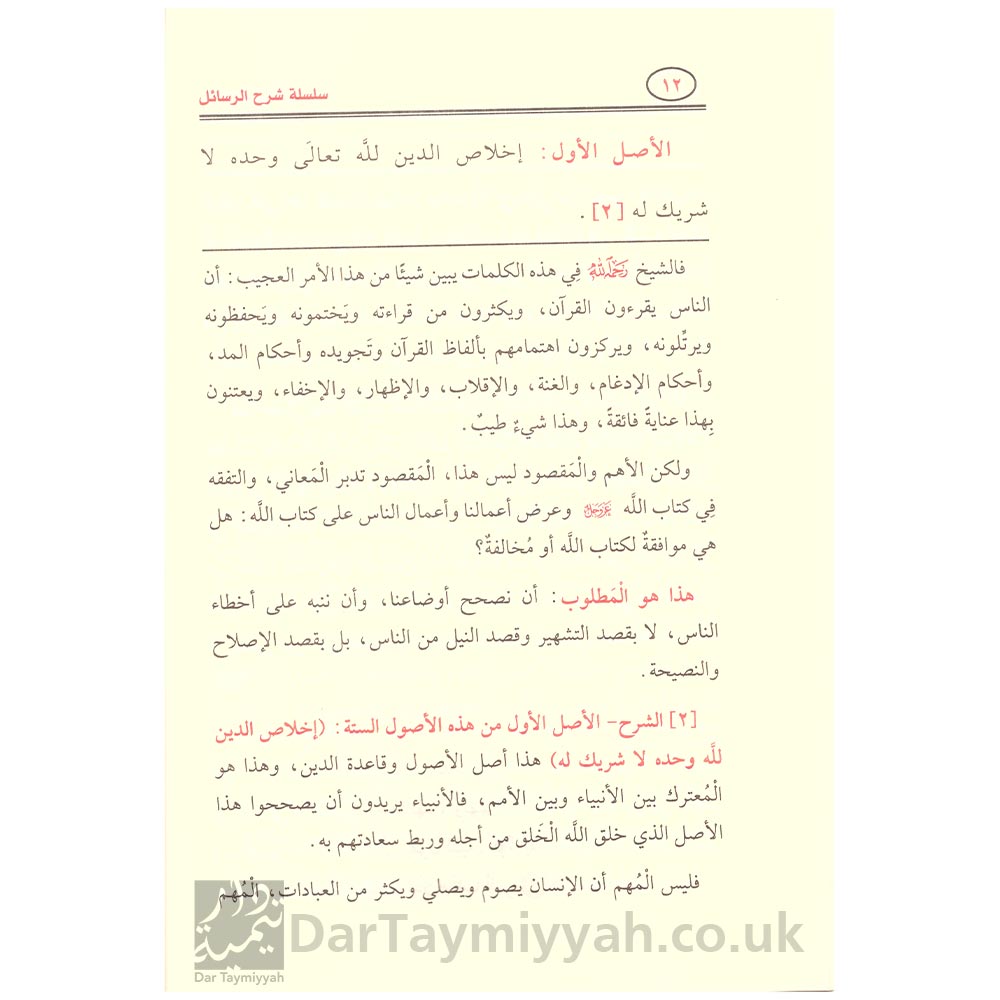 ١٢
سلسلة شرح الرسائل
الأصل الأول: إخلاص الدين للَّه تعالَى وحده لا
شريك له [٢].
فالشيخ رَحِمَهُ اللهُ فِي هذه الكلمات يبين شيئًا من هذا الأمر العجيب: أن
الناس يقرءون القرآن، ويكثرون من قراءته ويَختمونه ويَحفظونه
ويرتِّلونه، ويركزون اهتمامهم بألفاظ القرآن وتَجويده وأحكام المد،
وأحكام الإدغام، والغنة، والإقلاب، والإظهار، والإخفاء، ويعتنون
بِهذا عنايةً فائقةً، وهذا شيءٌ طيبٌ.
ولكن الأهم والْمَقصود ليس هذا، الْمَقصود تدبر الْمَعاني، والتفقه
فِي كتاب اللَّه عَزَّوَجَلَّ وعرض أعمالنا وأعمال الناس على كتاب اللَّه: هل
هي موافقةٌ لكتاب اللَّه أو مُخالفةٌ؟
هذا هو الْمَطلوب: أن نصحح أوضاعنا، وأن ننبه على أخطاء
الناس، لا بقصد التشهير وقصد النيل من الناس، بل بقصد الإصلاح
والنصيحة.
[٢] الشرح- الأصل الأول من هذه الأصول الستة: (إخلاص الدين
للَّه وحده لا شريك له) هذا أصل الأصول وقاعدة الدين، وهذا هو
الْمُعترك بين الأنبياء وبين الأمم، فالأنبياء يريدون أن يصححوا هذا
الأصل الذي خلق اللَّه الْخَلق من أجله وربط سعادتهم به.
فليس الْمُهم أن الإنسان يصوم ويصلي ويكثر من العبادات، الْمُهم
دار تيمية
DarTaymiyyah.co.uk
Dar Taymiyyah